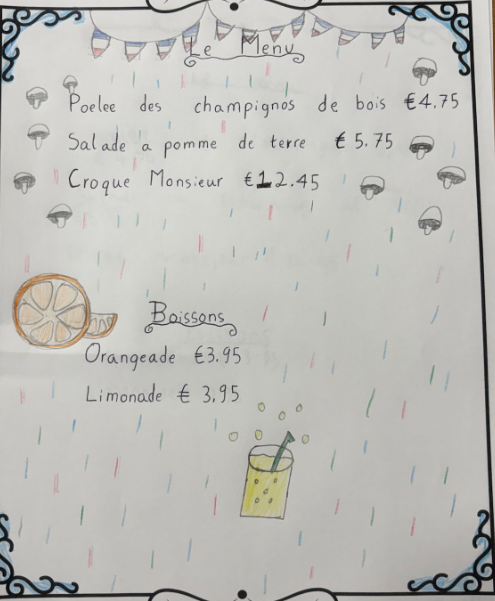 Le Menu
Poelee des champignos de bois €4.75
Salade a pomme de terre € 5.75
Croque Monsieur €12.45
Boissons
Orangeade €3.95
Limonade € 3.95